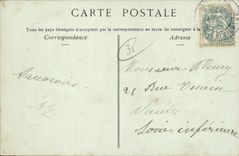 CARTE POSTALE
Tous les pays étrangers n'acceptent pas la correspondance au recto. (Se renseigner à la
Correspondance
Adresse
Souvenir
Monsieur Fleury
21 Rue
Nantes
Loire inférieure